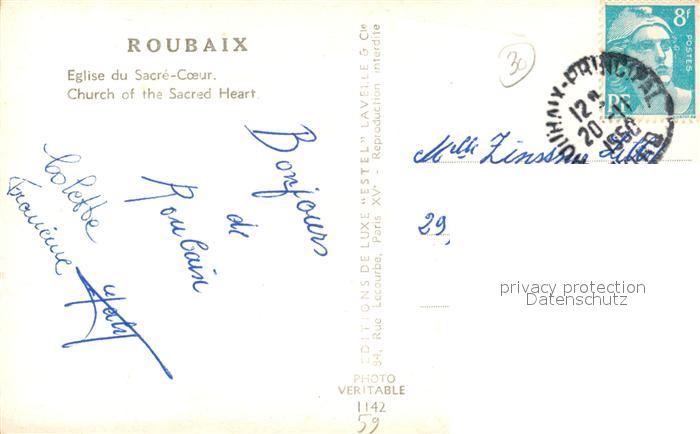 ROUBAIX
Eglise du Sacré-Cœur.
Church of the Sacred Heart.
Bonjours
de
Roubaix
Colette
Francine
EDITIONS DE LUXE "ESTEL" LAVELLE & Cie
84, Rue Lecourbe, Paris XVe - Reproduction interdite
PHOTO
VERITABLE
1142
59
30
8f
POSTES
RF
PRINCIPAL
12H
20-11
1950
Melle Zinssner
29,
privacy protection
Datenschutz